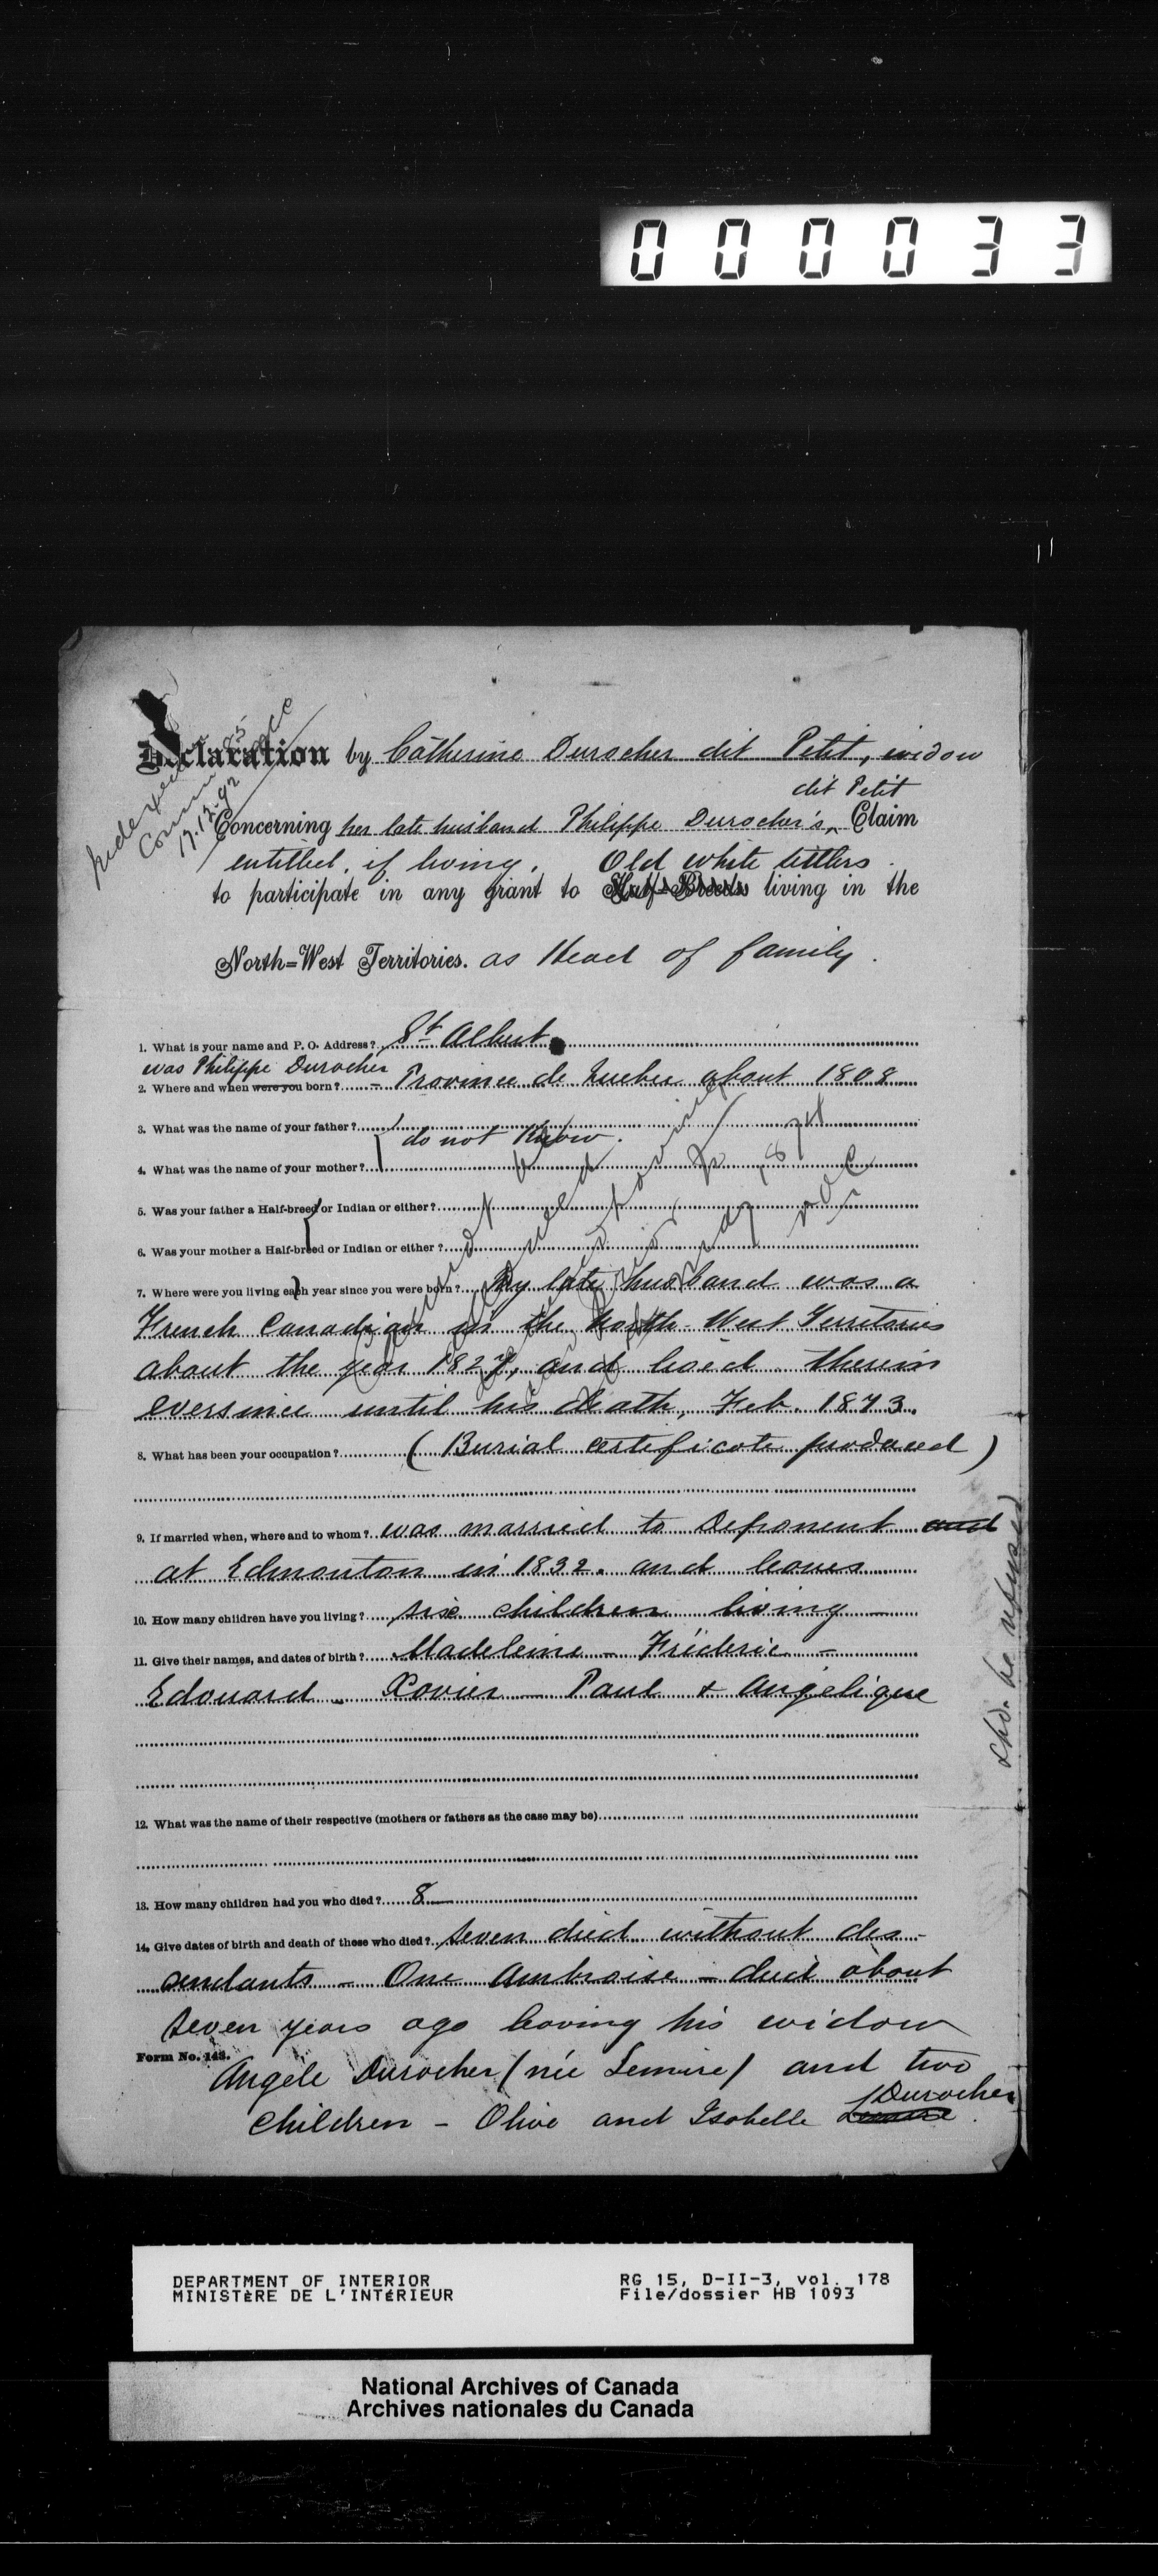 000033
Declaration by Catherine Durocher dit Petit, widow
dit Petit
Concerning her late husband Philippe Durocher's Claim
entitled, if living, Old white settlers
to participate in any grant to Half-Breeds living in the
North-West Territories. as Head of family.
1. What is your name and P. O. Address? St Albert
was Philippe Durocher
2. Where and when were you born? Province de Quebec about 1808
3. What was the name of your father?
do not Know.
4. What was the name of your mother?
5. Was your father a Half-breed or Indian or either?
6. Was your mother a Half-breed or Indian or either?
7. Where were you living each year since you were born? My late husband was a
French Canadian in the North-West Territories
about the year 1827, and lived therein
eversince until his death, Feb. 1873.
8. What has been your occupation? (Burial certificate produced)
9. If married when, where and to whom? was married to Deponent and
at Edmonton in 1832. and leaves
10. How many children have you living? six children living
11. Give their names, and dates of birth? Madeleine - Fréderic -
Edouard - Xavier - Paul & Angélique
12. What was the name of their respective (mothers or fathers as the case may be)
13. How many children had you who died? 8
14. Give dates of birth and death of these who died? Seven died without des-
cendants - One Ambroise - died about
seven years ago leaving his widow
Form No. 143.
Angele Durocher (née Lemire) and two
Durocher
children - Olive and Isabelle Lemire.
shd. be refused
DEPARTMENT OF INTERIOR
MINISTÈRE DE L'INTÉRIEUR
RG 15, D-II-3, vol. 178
File/dossier HB 1093
National Archives of Canada
Archives nationales du Canada